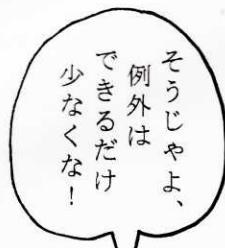 そうじゃよ、
例外は
できるだけ
少なくな！